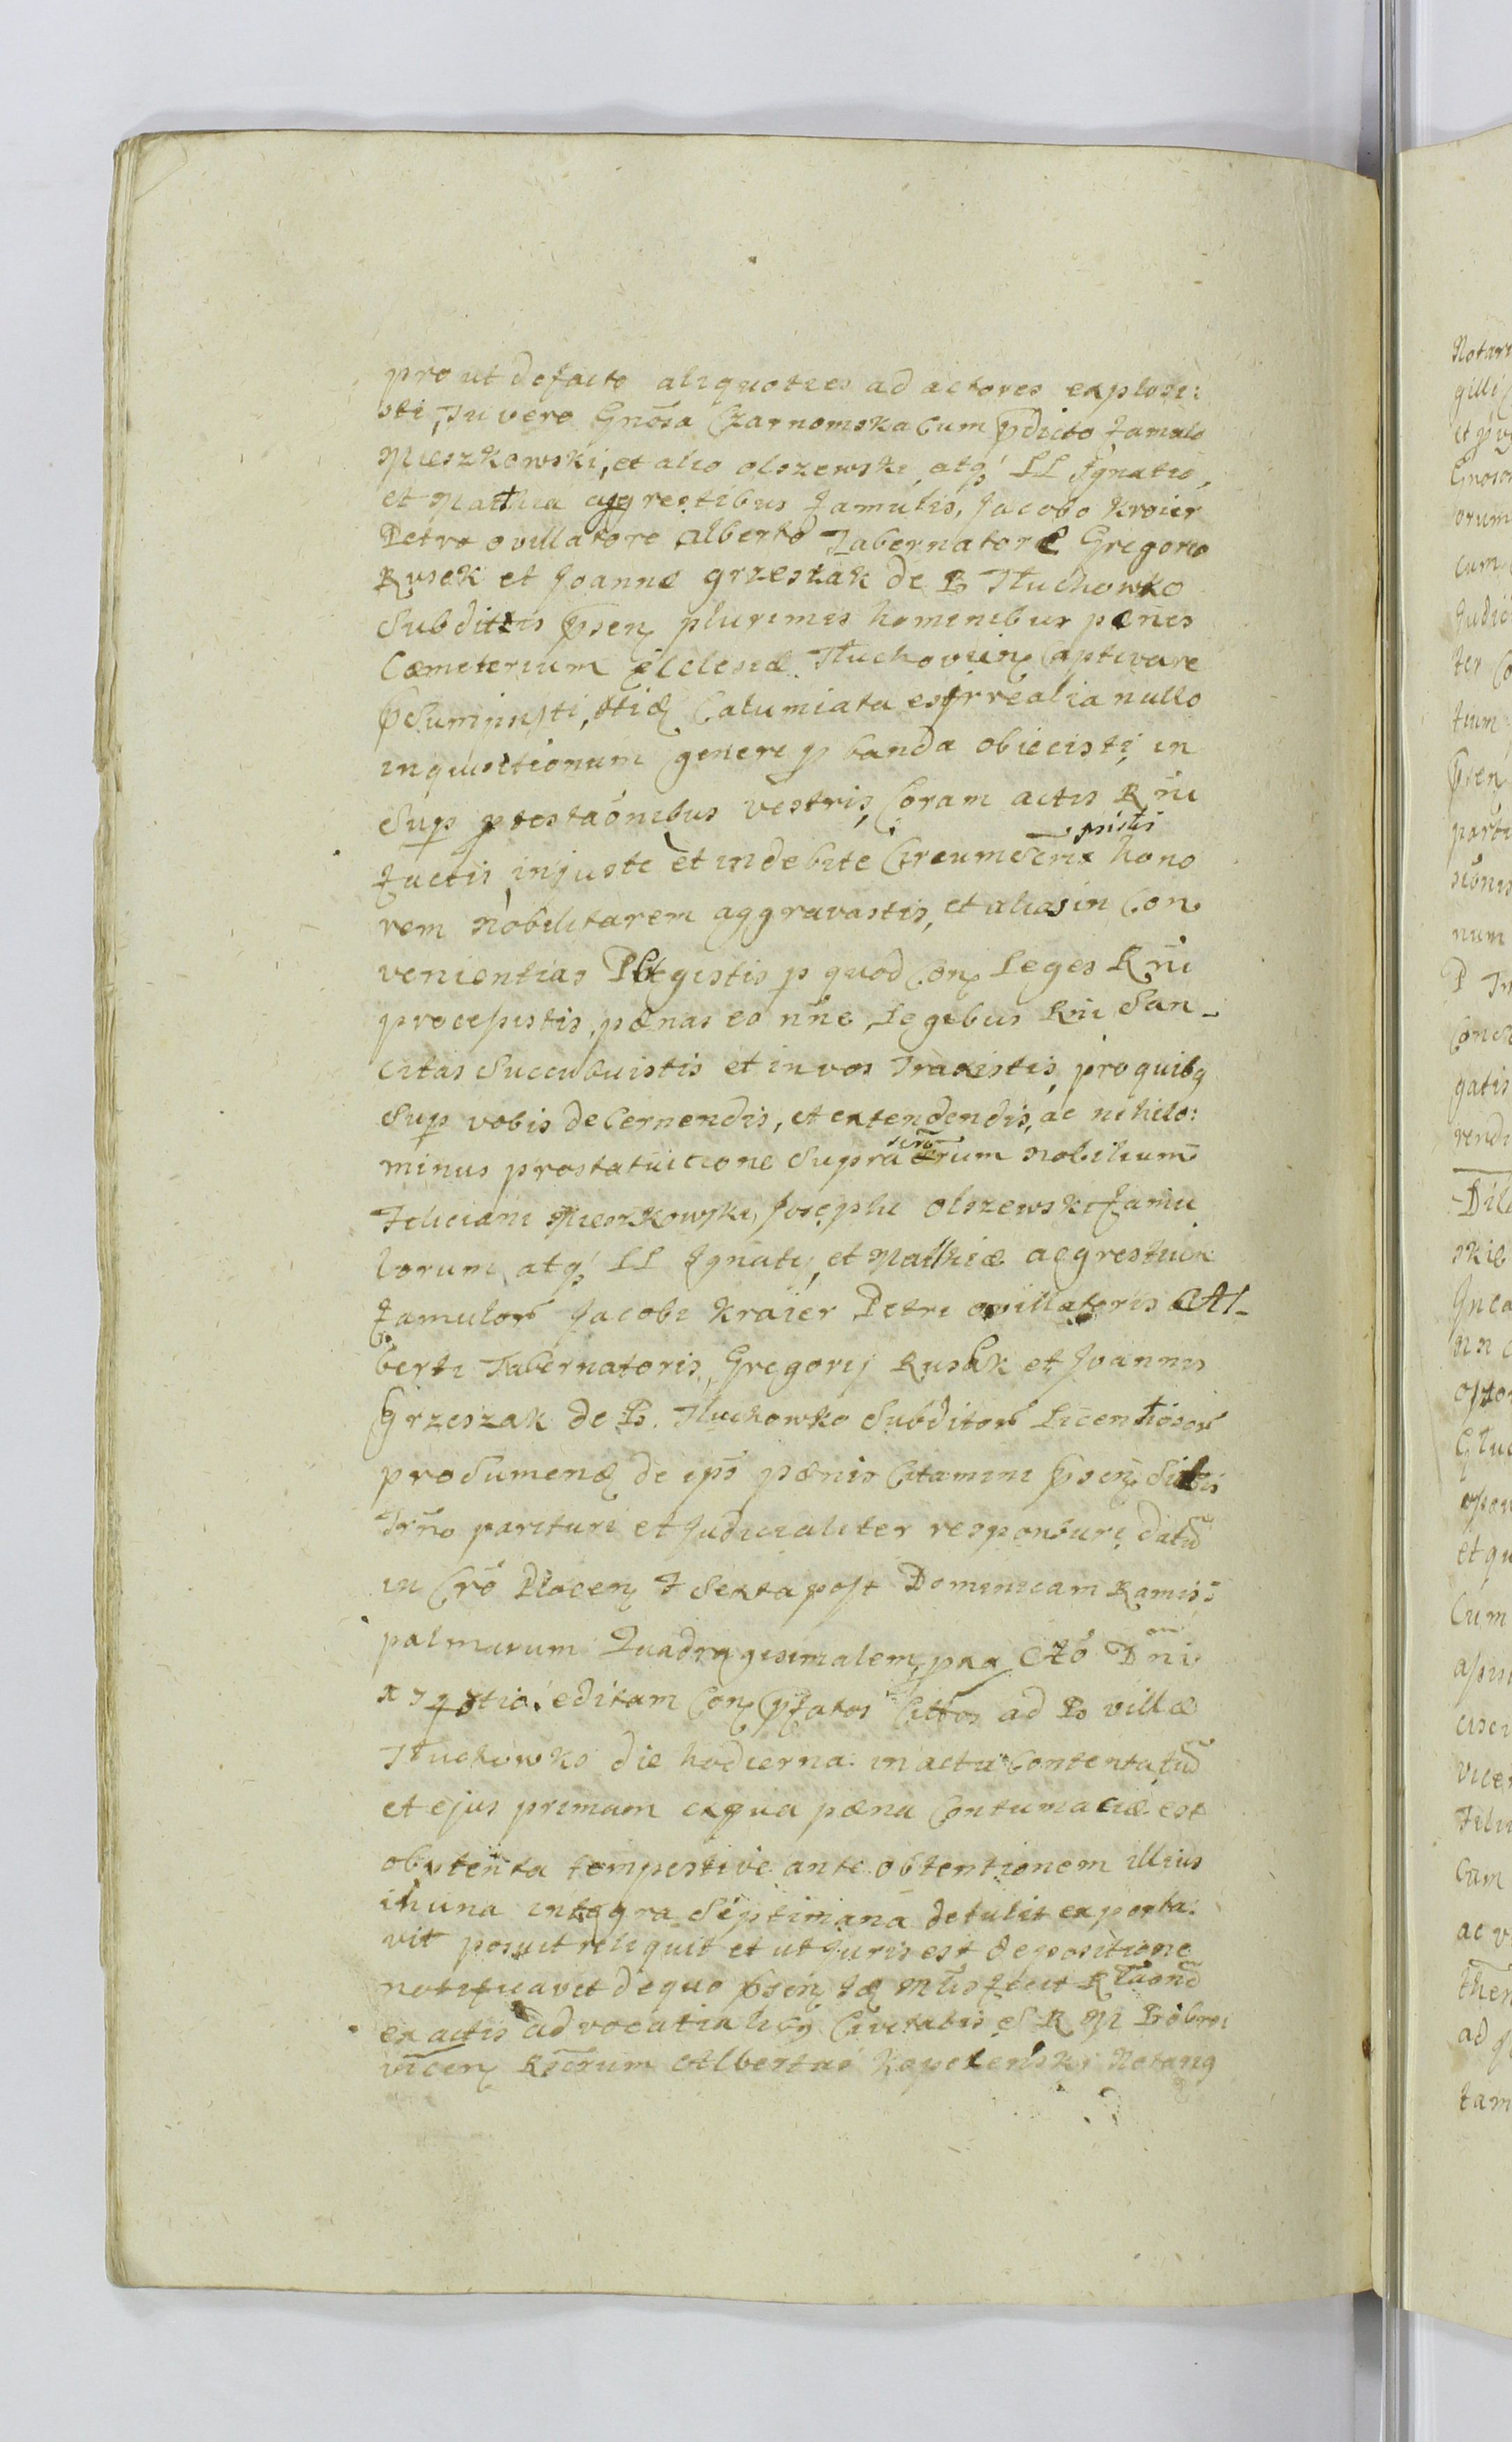 pro ut de facto aliquoties ad actores explosi:
sti, Tu vero Gnōsa Czarnomska Cum pdicto famulo
Mieszkowski, et alio olszewski, atq, LL Ignatio,
et Mathia aggrestibus famulis, Jacobo Kraier
Petro ovillatore Alberto Tabernatore Gregorio
Rusek et Joanne grzeszak de B Tłuchowko
Subditis psen plurimis hominibus pænes
Cæmeterium Ecclesiæ Tłuchovien Captivare
psumpsisti, Calumiata es irrealia nullo
inquisitionum genere p banda obiecisti, in
Sup ptestaōnibus vestris, Coram actis Rñi
factis injuste et indebite Circum hono
rem Nobilitarem aggravastis, et alias in Con
venientias Pegistis p quod Con Leges Rñi
procepistis, pænas eo nñe, Legibus Rñi San_
citas Succubuistis et in vos Traxistis, pro quibq
Sup vobis deCernendis, et extendendis, ac nihilo:
minus prostatuicione Supra Nobilium
Feliciani Mieszkowski, Josephi Olszewski famu
lorum, atq, LL Ignaty, et Mathiæ aggrestium
famulor Jacobi Kraier Petri ovillatoris Al_
berti Tabernatoris, Gregorij Rusek et Joannis
Grzeszak de B. Tłuchowko Subditor Licentiosor
prosumen de ips pænis Citamini psen
Trño parituri et Judicialiter responsuri, datū
in Crō Plocen F Sexta post Dominicam Ramis:
palmarum Quadragesimalem, Dñi
editam Con pfatos Cittos ad B villæ
Tłuchowko die hodierna in actu Contentatū
et ejus primam ex qua pæna Contumaciæ est
obtenta tempestive ante obtentionem illius
in una integra Septimana detulit exporta:
vit posuit reliquit et ut Juris est depositione
notificavit de quo psen fecit
ex actis advocatialibq Civitatis S R M
vicen Rscrum Albertus Kapelenski Notarig